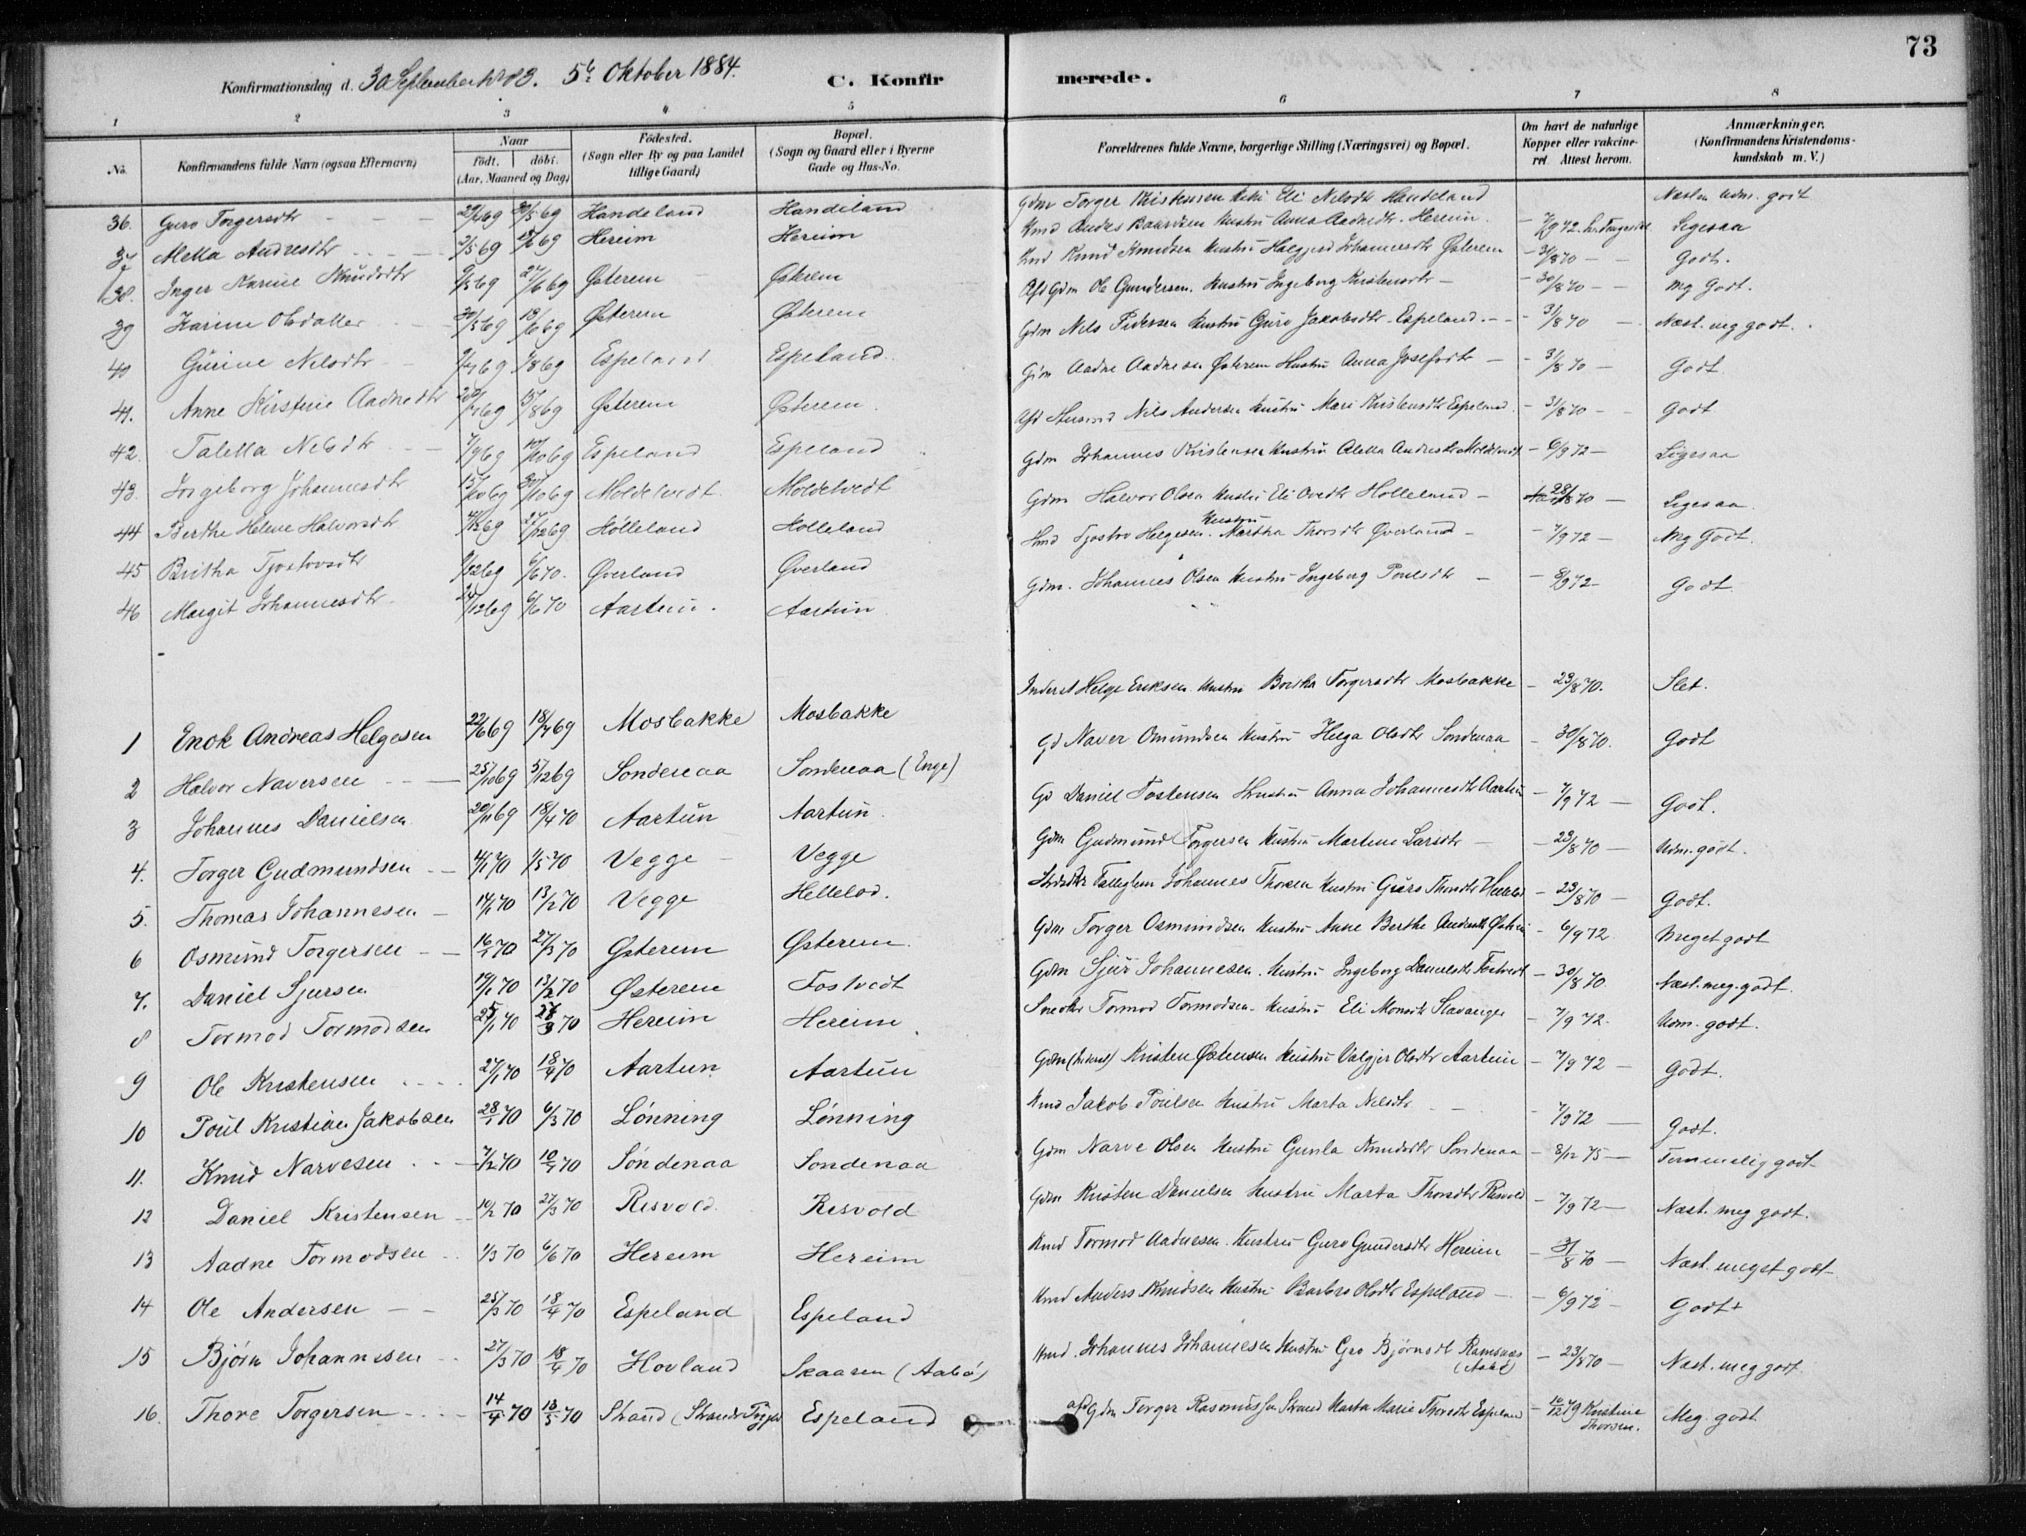 73
Konfirmationsdag d. 30 September 1883. 5te Oktober 1884.
C. Konfirmerede.
1 2 3 4 5 6 7 8
No.
Konfirmandens fulde Navn (ogsaa Efternavn)
Naar
født. | døbt.
(Aar, Maaned og Dag)
Fødested.
(Sogn eller By og paa Landet
tillige Gaard)
Bopæl.
(Sogn og Gaard eller i Byerne
Gade og Hus-No.
Forældrenes fulde Navne, borgerlige Stilling (Næringsvei) og Bopæl.
Om havt de naturlige
Kopper eller vakcine-
ret. Attest herom.
Anmærkninger.
(Konfirmandens Kristendoms-
kundskab m. V.)
36. Guro Torgersdtr 69 30/5 69 Handeland Handeland Gdm Torger Kristensen Eli Nilsdtr Handeland Næsten udm. godt
37 Mella Andersdtr 2/5 69 69 Hereim Hereim Hmd Anders Baardsen Hustru Anna Aadnedtr Hereim 7/9 72 Ligesaa
38. Inger Karine Knudsdtr 9/5 69 27/6 69 Østerem Østerem Hmd Knud Knudsen Hustru Johannesdtr Østerem 31/8 70 Godt.
39 Karine Olsdatter 30/5 69 69 Østerem Østerem Afd Gdm Ole Gundersen Hustru Ingeborg Kristensdtr 30/8 70 Mg Godt.
40 Gurine Nilsdtr 69 1/8 69 Espeland Espeland Gdm Nils Pedersen Hustru Guro Jakobsdtr Espeland 31/8 70 Næst. meg godt.
41. Anne Kirstine Aadnedtr 69 15/8 69 Østerem Østerem Gdm Aadne Aadnesen Østerem Hustru Anna Josefsdtr 31/8 70 Godt
42. Taletta Nilsdtr 7/9 69 10/10 69 Espeland Espeland Afd Husmd Nils Andersen Hustru Mari Kristensdtr Espeland 31/8 70 Godt
43. Ingeborg Johannesdtr 15/10 69 30/10 69 Moldetvedt Moldetvedt Gdm Johannes Kristensen Hustru Aletta Andersdtr Moldetvedt 6/9 72 Ligesaa
44 Berthe Helene Halvorsdtr 69 27/12 69 Hølleland Hølleland Gdm Halvor Olsen Hustru Eli Hølleland 28/8 70 Ligesaa
45 Britha Tjostovsdtr 9/12 69 6/6 70. Øverland Øverland Hmd Tjostov Helgesen Hustru Martha Thorsdtr Øverland 7/9 72 Mg Godt.
46 Margit Johannesdtr 24/12 69 6/6 70 Aartun Aartun Gdm. Johannes Olsen Hustru Ingeborg Poulsdtr 8/9 72 Godt
1 Enok Andreas Helgesen 22/6 69 18/7 69 Mosbakke Mosbakke Inderst Helge Eriksen Hustru Bertha Torgersdtr Mosbakke 23/8 70. Slet.
2 Halvor Naversen 25/10 69 5/12 69 Søndenaa Søndenaa (Enge) Gd Naver Omundsen Hustru Helga Olsdtr Søndenaa 30/8 70. Godt
3 Johannes Danielsen 20/11 69 18/4 70 Aartun Aartun Gd Daniel Tostensen Hustru Anna Johannesdtr Aartun 7/9 72 Godt.
4. Torger Gudmundsen 4/1 70 1/5 70 Vegge Vegge Gdm Gudmund Torgersen Hustru Martine Larsdtr 23/8 70 Udm. godt.
5. Thomas Johannesen 14/1 70 13/2 70 Vegge Hellelød. Johannes Thorsen Hustru Guro Thorsdtr 23/8 70 Godt.
6 Osmund Torgersen 16/1 70 27/3 70 Østerem Østerem Gdm Torger Osmundsen Hustru Anne Berthe Andersdtr Østrem 6/9 72 Meget godt
7. Daniel Sjursen 19/1 70 13/2 70 Østerem Fostvedt Gdm Sjur Johannesen Hustru Ingeborg Danielsdtr Fostvedt 30/8 70 Næst. meg. godt.
8 Tormod Tormodsen 25/1 70 27/3 70 Hereim Hereim Snedker Tormod Tormodsen Hustru Eli Monsdtr Stavanger 7/9 72. Udm. godt.
9 Ole Kristensen 27/1 70 18/4 70 Aartun Aartun Gdm Kristen Østensen Hustru Valgjer Olsdtr Aartun 7/9 72 Godt.
10 Poul Kristian Jakobsen 28/1 70 6/3 70 Lønning Lønning Hmd Jakob Poulsen Hustru Marta Nilsdtr 7/9 72 Godt.
11. Knud Narvesen 7/2 70 10/4 70 Søndenaa Søndenaa Gdm Narve Olsen Hustru Gunla Knudsdtr Søndenaa 8/12 75 Temmelig godt
12 Daniel Kristensen 10/2 70 27/3 70 Risvold Risvold Gdm Kristen Danielsen Hustru Marta Thorsdtr Risvold 7/9 72 Næst. meg godt.
13 Aadne Tormodsen 1/3 70 6/6 70 Hereim Hereim Hmd Tormod Aadnesen Hustru Guro Gundersdtr Hereim 31/8 70 Næst. meget godt
14 Ole Andersen 25/3 70 18/4 70 Espeland Espeland Hmd Anders Knudsen Hustru Barbro Olsdtr Espeland 6/9 72 Godt+
15 Bjørn Johannesen 27/3 70 18/4 70 Hovland Skaaren (Aabø) Hmd. Johannes Johannesen Hustru Gro Bjørnsdt Ramsnæs 23/8 70 Næst. meg godt.
16. Thore Torgersen 14/4 70 18/5 70 Strand (Strands Espeland afd Gdm Torger Rasmussen Strand Marta Marie Thorsdtr Espeland 10/12 79 Kirstine Thorsen. Meg. godt